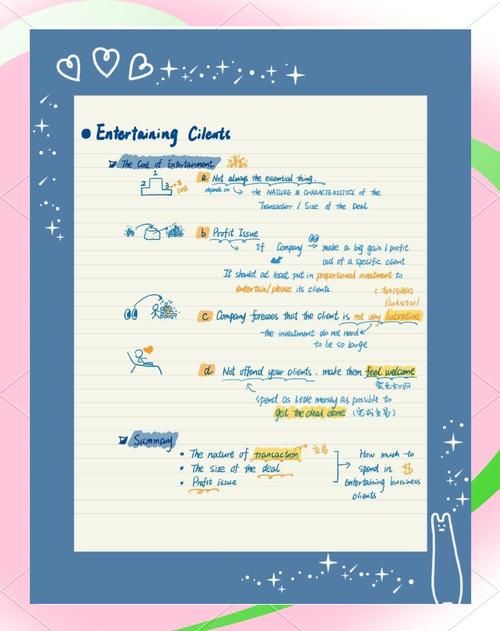 Entertaining Cilents
The Cost of Entertainment
a Not always the essential thing.
depends on → the NATURE & CHARACTERISTICS of the
Transaction / Size of the Deal
b Profit Issue
If Company → make a big gain / profit
out of a specific client
It should at least put in proportional investment to
entertain/please its clients.
c. Company foresees that the client is not very lucrative
-the investment do not need
to be so large
d. Not offend your clients, make them feel welcome
宾至如归
spend as little money as possible to
get the deal done (完成交易)
Summary
• The nature of transaction 交易
• The size of the deal
• Profit issue
How much to
spend in $
entertaining business
clients